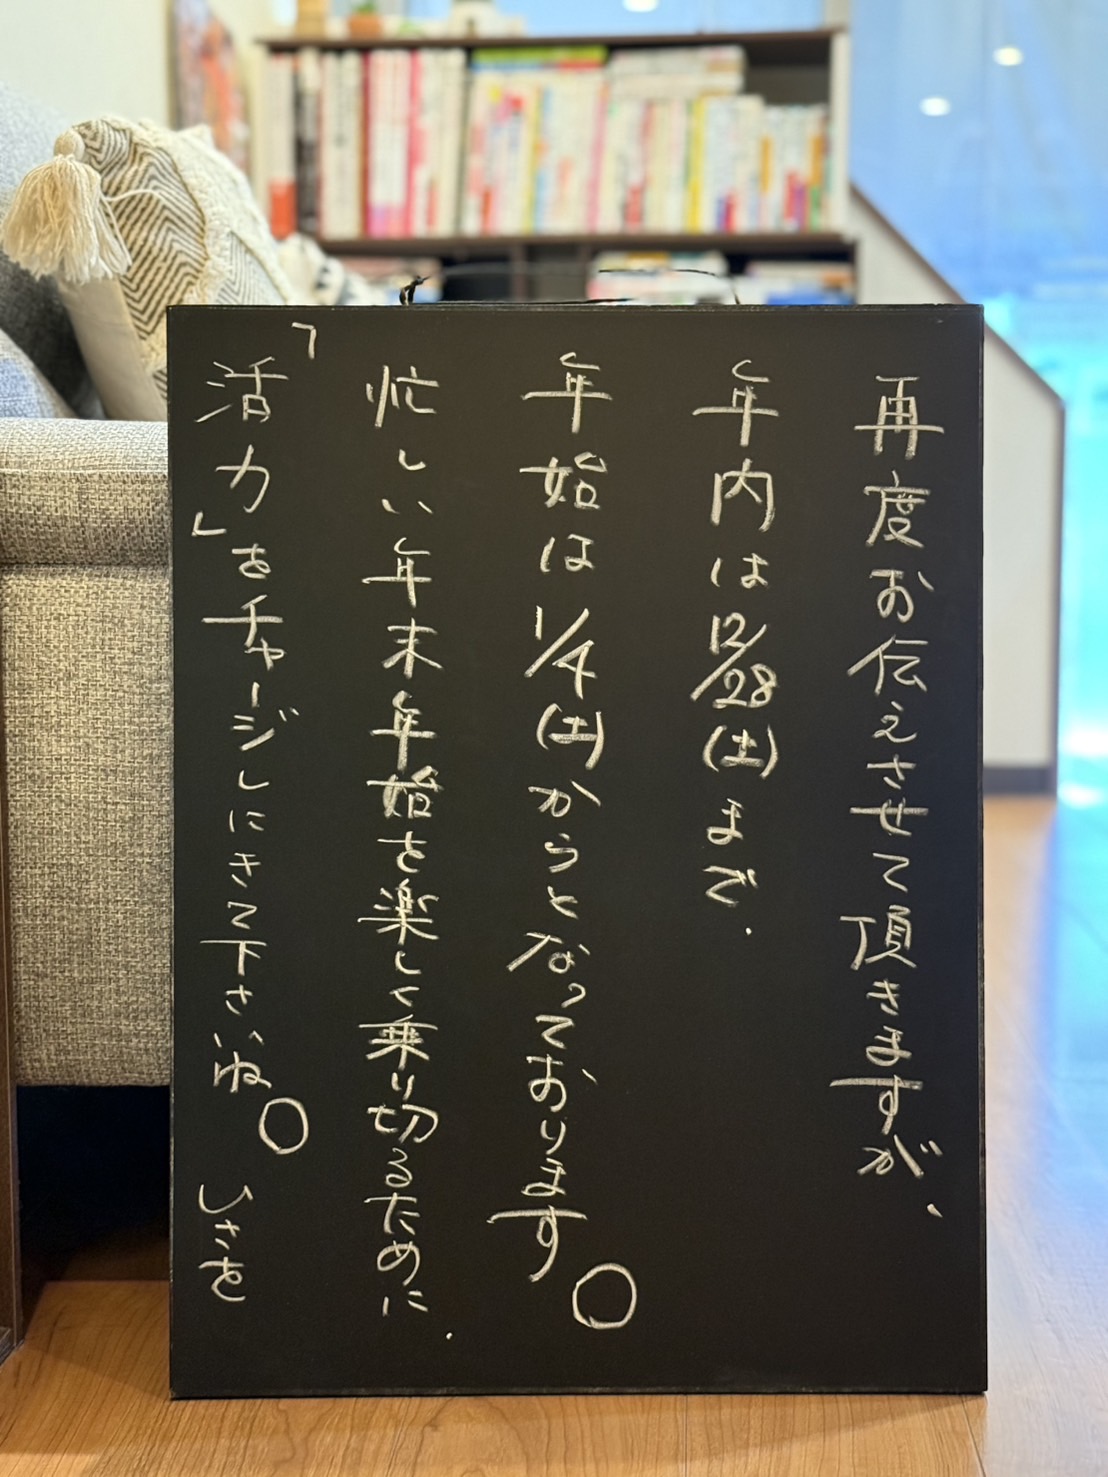 再度お伝えさせて頂きますが、
年内は12/28(土)まで、
年始は1/4(土)からとなっております。
忙しい年末年始を楽しく乗り切るために、
「活力」をチャージしにきて下さいね。 ひさを